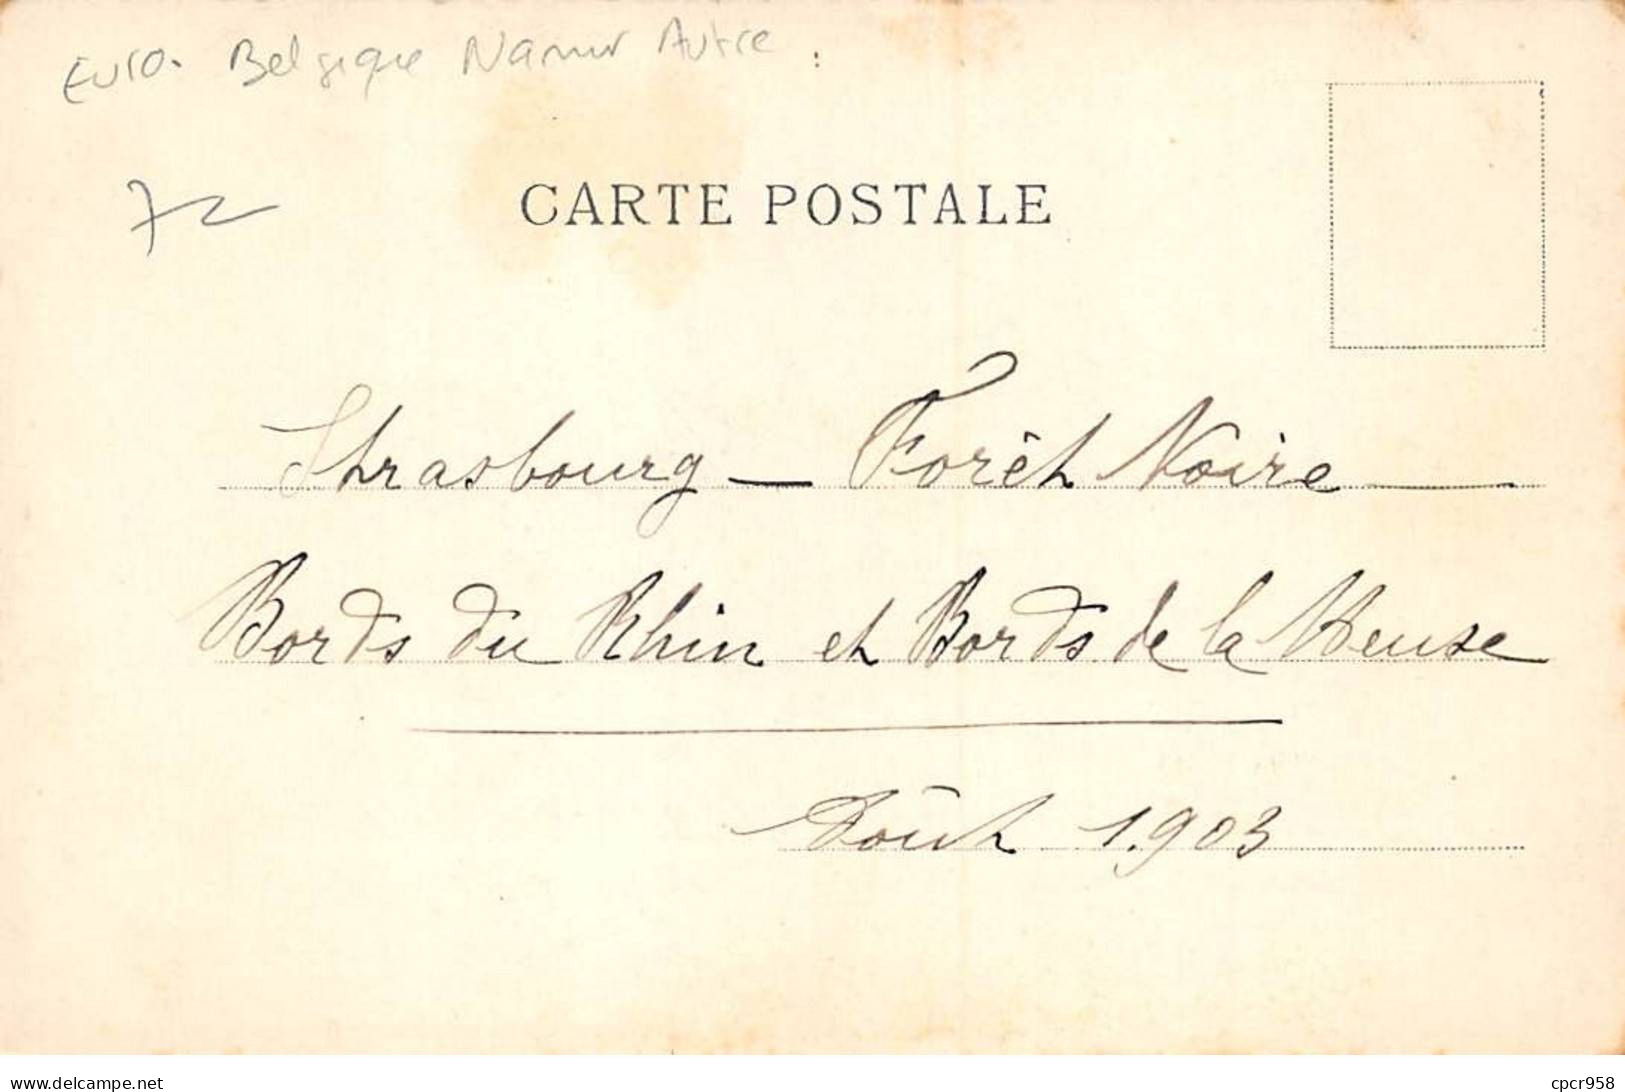 Euro. Belgique Namur Autre :
72
CARTE POSTALE
Strasbourg — Forêt Noire —
Bords du Rhin et Bords de la Meuse
Août 1.903
www.delcampe.net
cpcr958